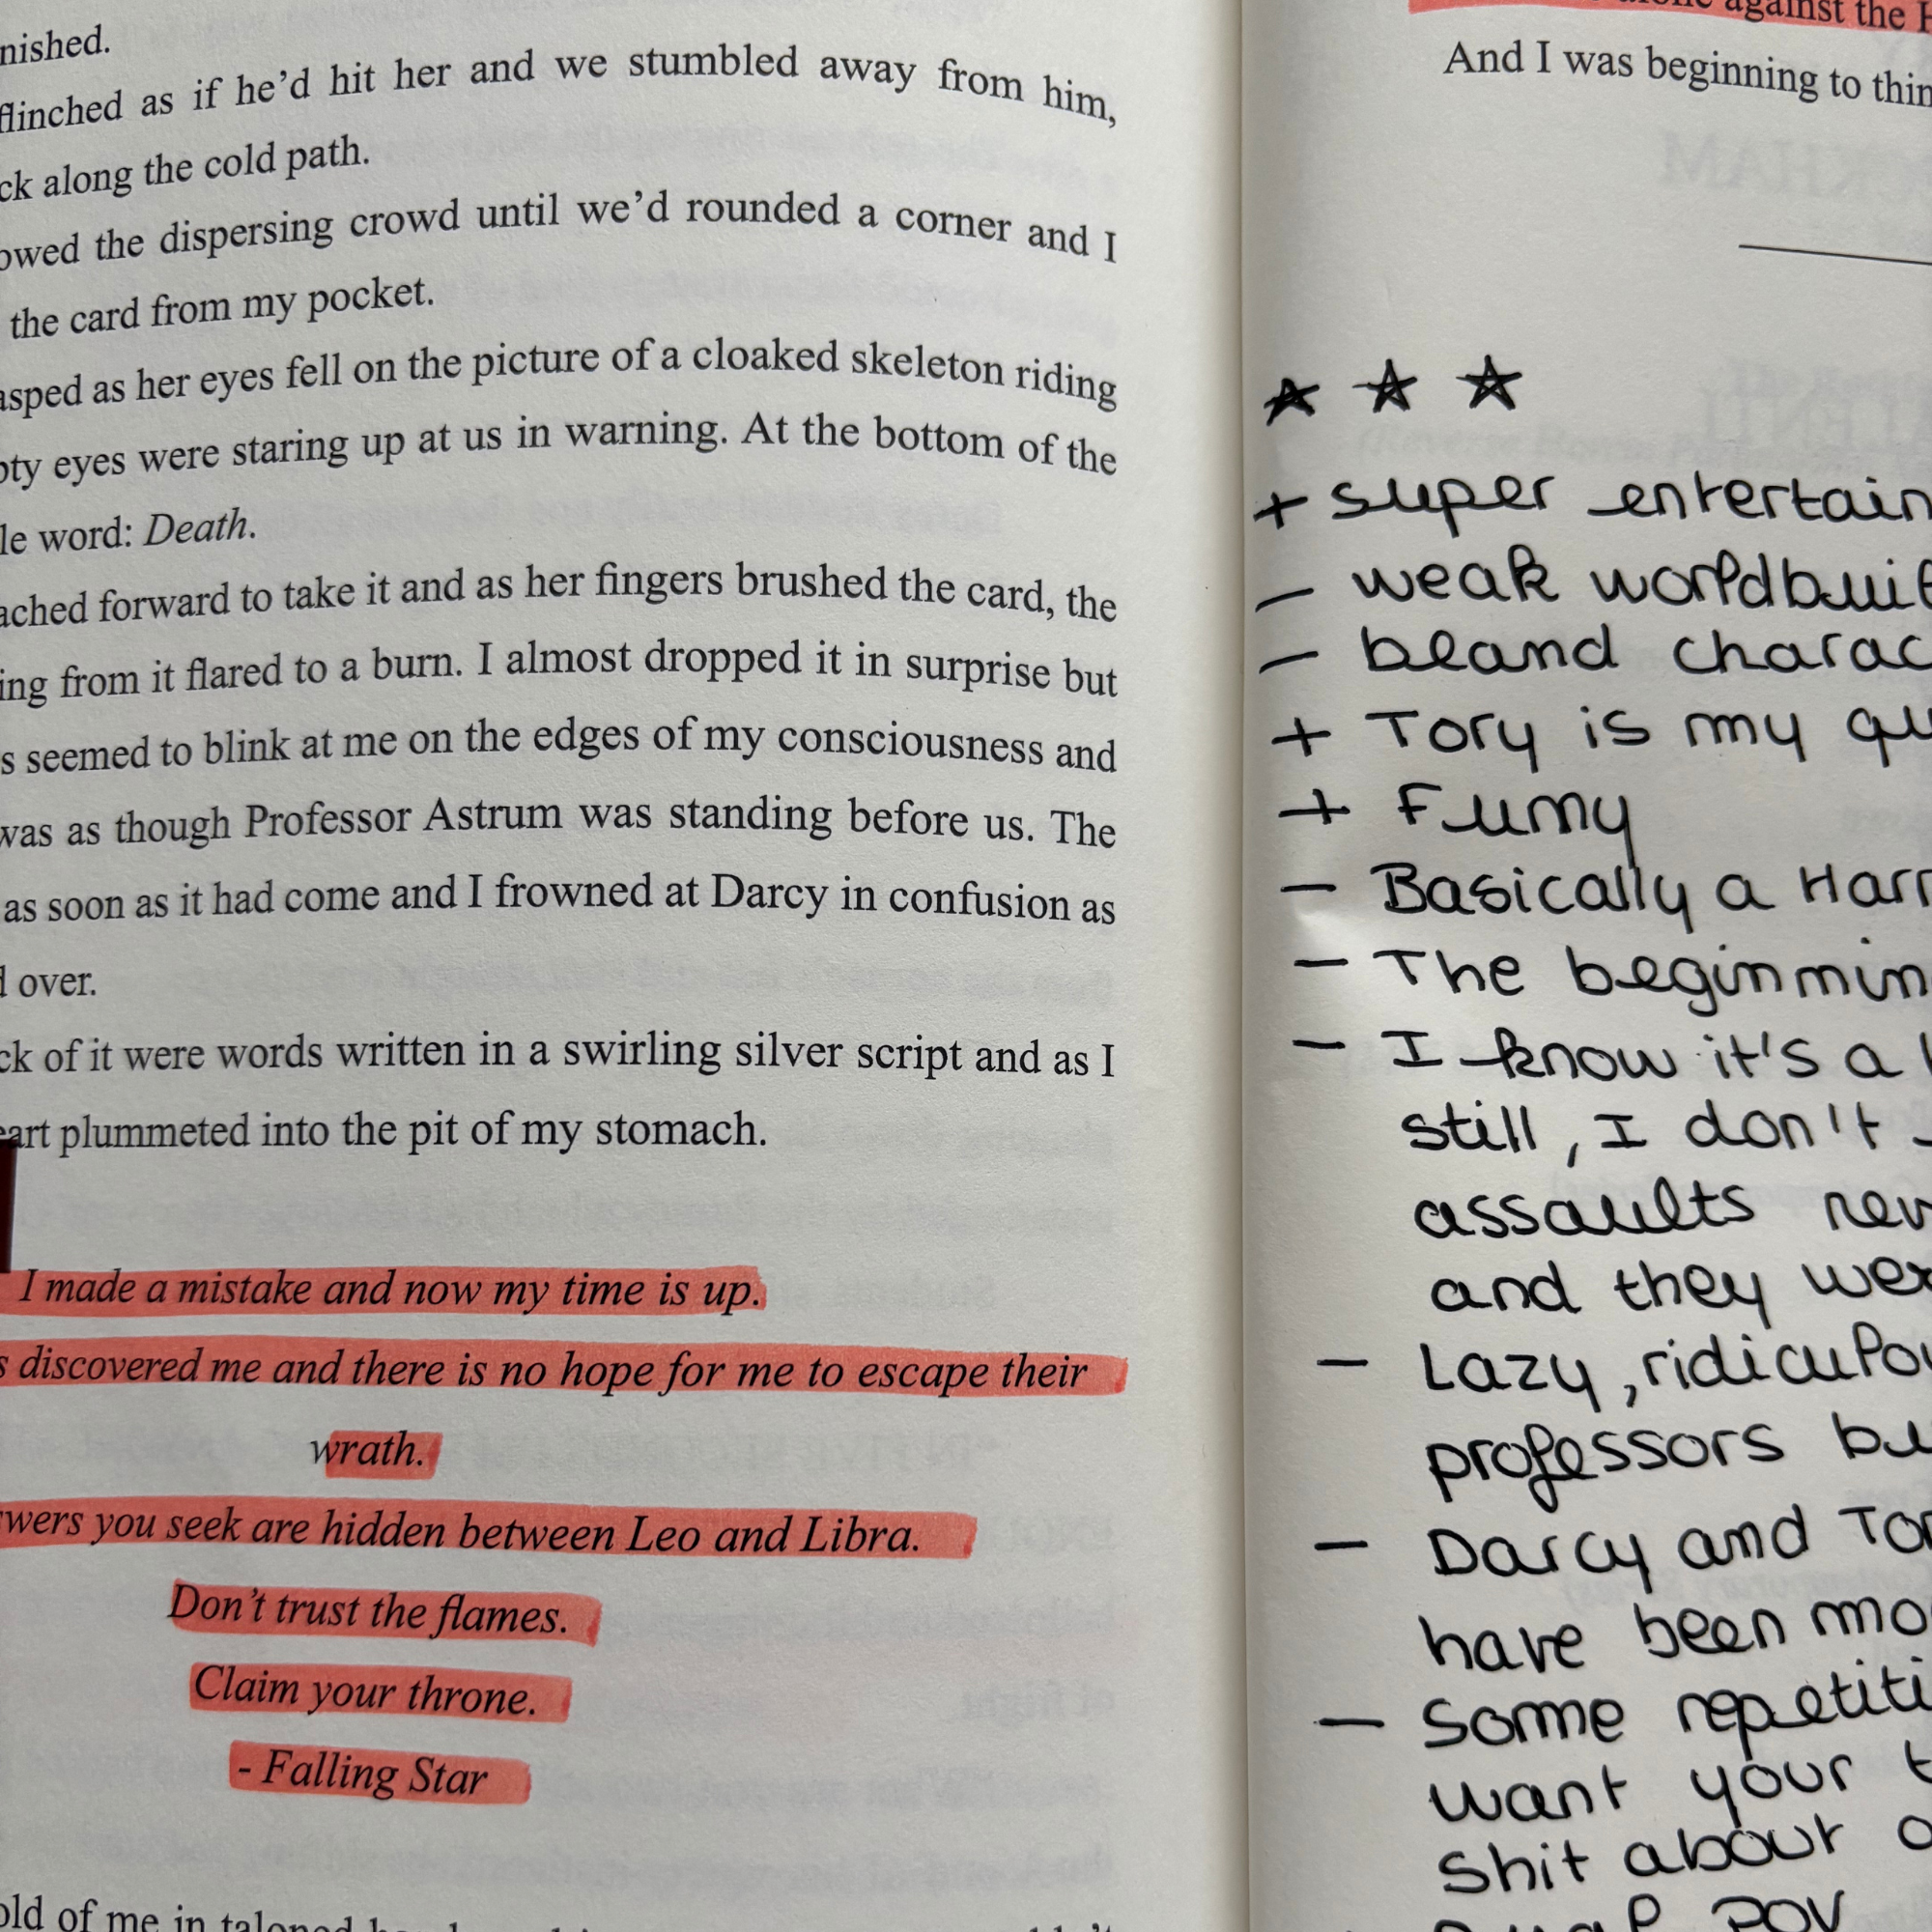 nished.
flinched as if he’d hit her and we stumbled away from him,
ck along the cold path.
owed the dispersing crowd until we’d rounded a corner and I
the card from my pocket.
asped as her eyes fell on the picture of a cloaked skeleton riding
pty eyes were staring up at us in warning. At the bottom of the
le word: Death.
ached forward to take it and as her fingers brushed the card, the
ing from it flared to a burn. I almost dropped it in surprise but
s seemed to blink at me on the edges of my consciousness and
was as though Professor Astrum was standing before us. The
as soon as it had come and I frowned at Darcy in confusion as
d over.
ck of it were words written in a swirling silver script and as I
eart plummeted into the pit of my stomach.
I made a mistake and now my time is up.
s discovered me and there is no hope for me to escape their
wrath.
swers you seek are hidden between Leo and Libra.
Don’t trust the flames.
Claim your throne.
- Falling Star
old of me in taloned
against the H
And I was beginning to thin
+ super entertain
- weak worldbuil
- bland charac
+ Tory is my qu
+ Funny
- Basically a Harr
- The beginnin
- I know it's a
still, I don't
assaults rev
and they wer
- Lazy, ridiculou
professors bu
- Darcy and Tor
have been mo
- Some repetiti
want your t
shit about o
Dual POV